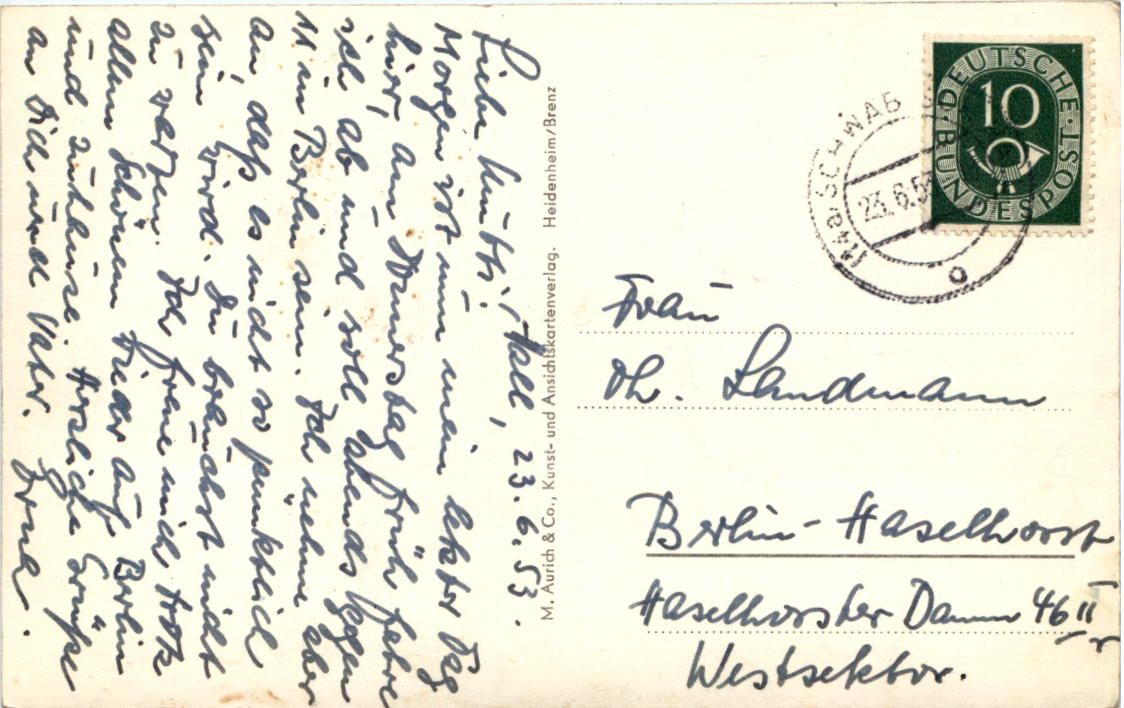 Hall, 23.6.53.
Liebe Mutti!
Morgen ist nun mein letzter Tag
hier, am Donnerstag früh fahre
ich ab und soll abends gegen
11 in Berlin sein. Ich nehme aber
an, daß es nicht so pünktlich
sein wird. Du brauchst nicht
zu warten. Ich freue mich trotz
allem Schönen wieder auf Berlin
und Zuhause. Herzliche Grüße
an Dich und Vater.
M. Aurich & Co., Kunst- und Ansichtskartenverlag. Heidenheim/Brenz
DEUTSCHE BUNDESPOST
10
(14a) SCHWÄB
23.6.53
Frau
Landmann
Berlin-Haselhorst
Haselhorster Damm 46 II
Westsektor.